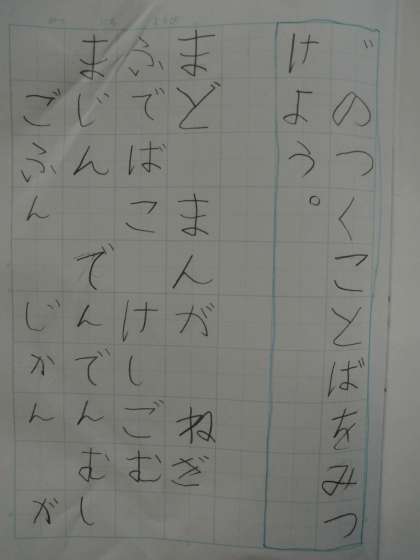 ゛のつくことばをみつ
けよう。
まど まんが ねぎ
ふでばこ けしごむ
まじん でんでんむし
ごふん じかん が